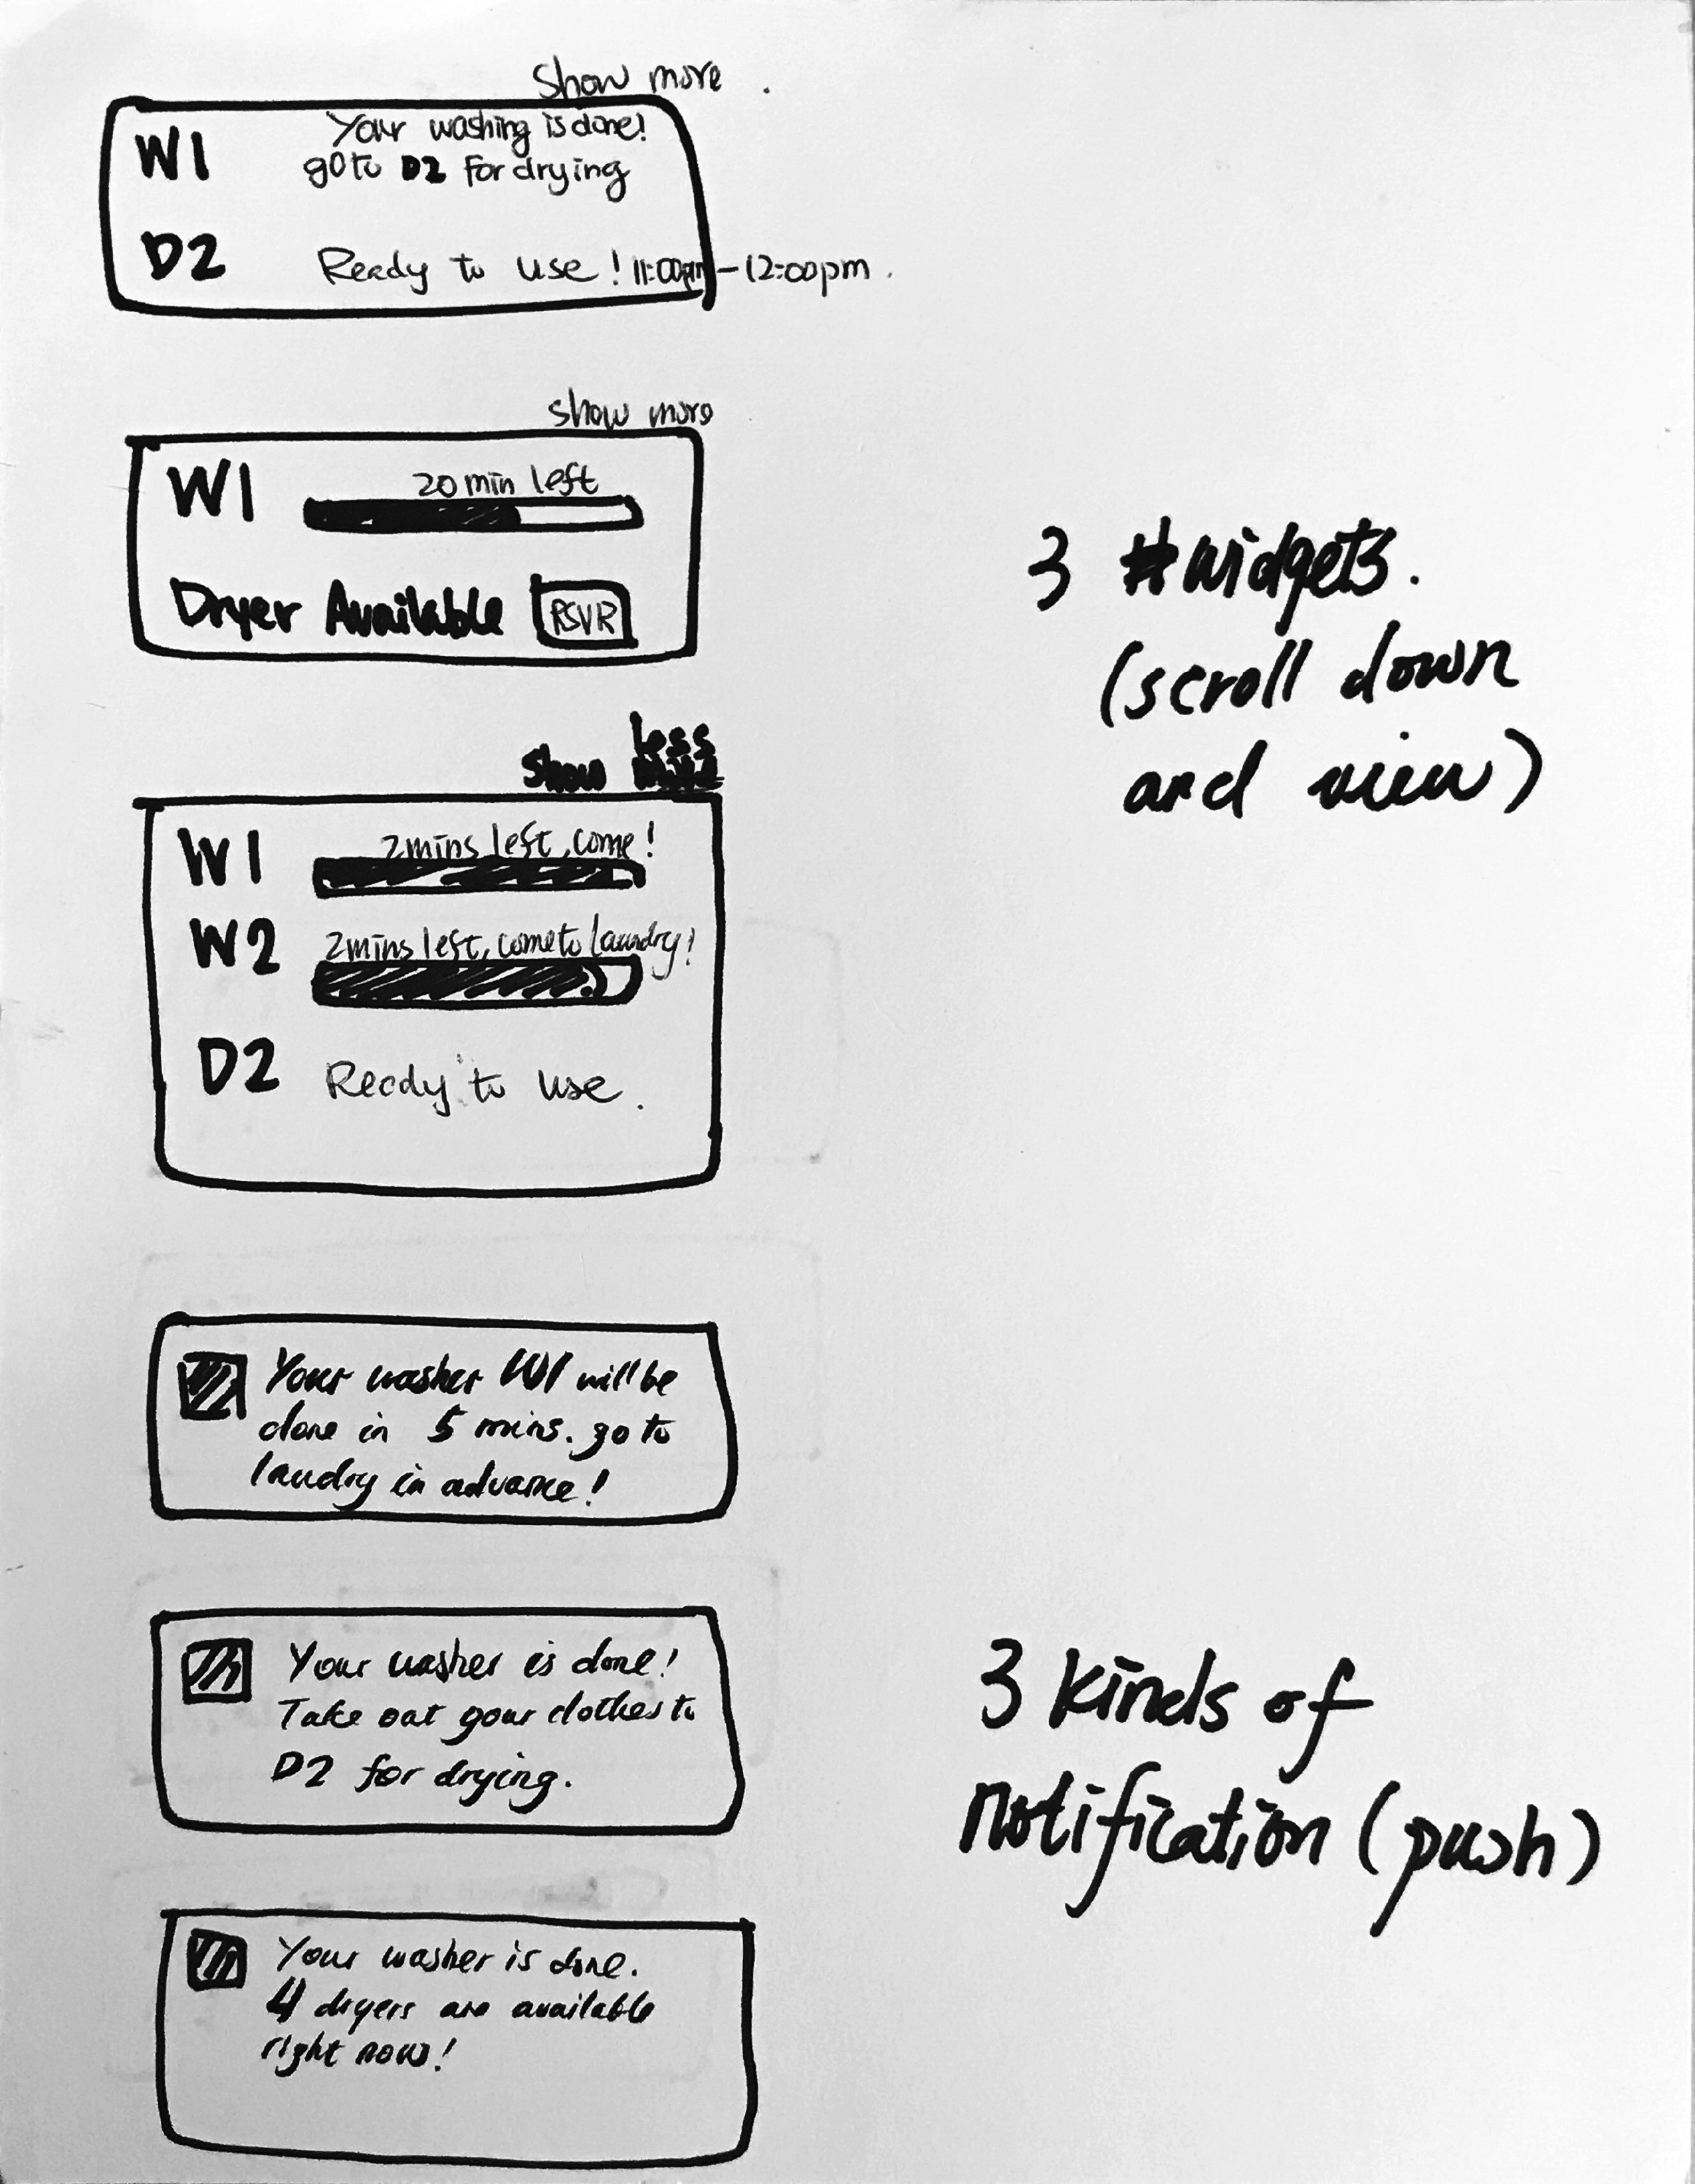 Show more .
W1 Your washing is done!
go to D2 for drying
D2 Ready to use ! 11:00pm - 12:00pm .
show more
W1 20 min left
Dryer Available RSVR
show less
W1 2mins left, come!
W2 2mins left, come to laundry!
D2 Ready to use .
3 # widgets.
(scroll down
and view)
Your washer W1 will be
done in 5 mins. go to
laundry in advance!
Your washer is done!
Take out your clothes to
D2 for drying.
Your washer is done.
4 dryers are available
right now!
3 kinds of
notification (push)